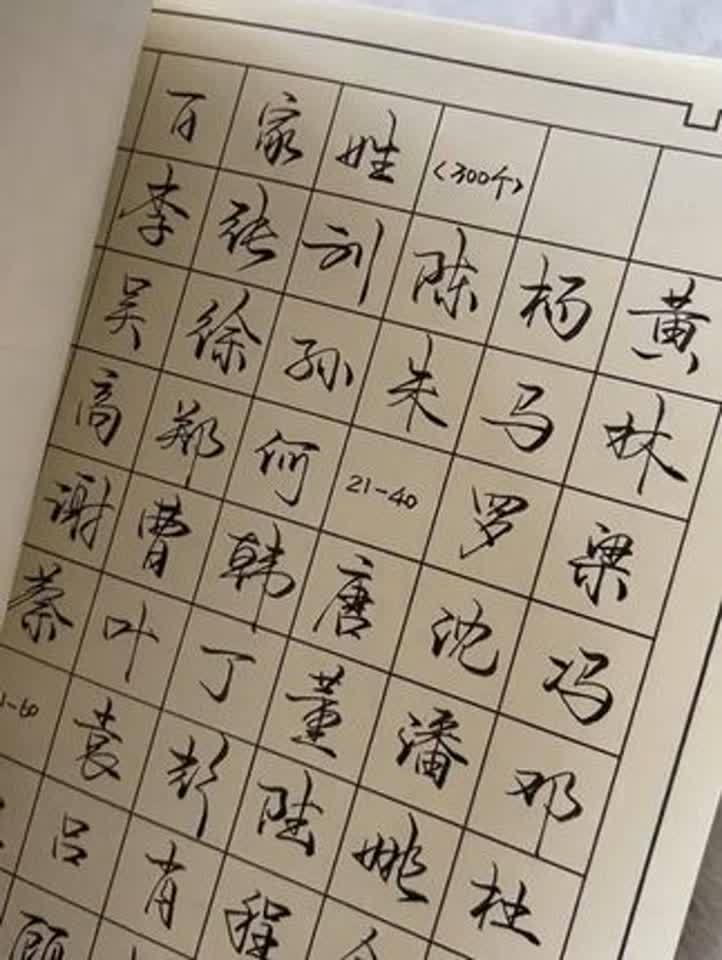 百家姓(300个)
李张刘陈杨黄
吴徐孙朱马林
高郑何21-40罗梁
谢曹韩唐沈冯
蔡叶丁董潘邓
袁彭陆姚杜
吕肖程
顾